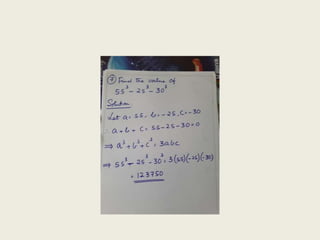 ⑦ Find the value of
55³ - 25³ - 30³
Solution
Let a = 55, b = -25, c = -30
∴ a + b + c = 55 - 25 - 30 = 0
⇒ a³ + b³ + c³ = 3abc
⇒ 55³ - 25³ - 30³ = 3(55)(-25)(-30)
= 123750